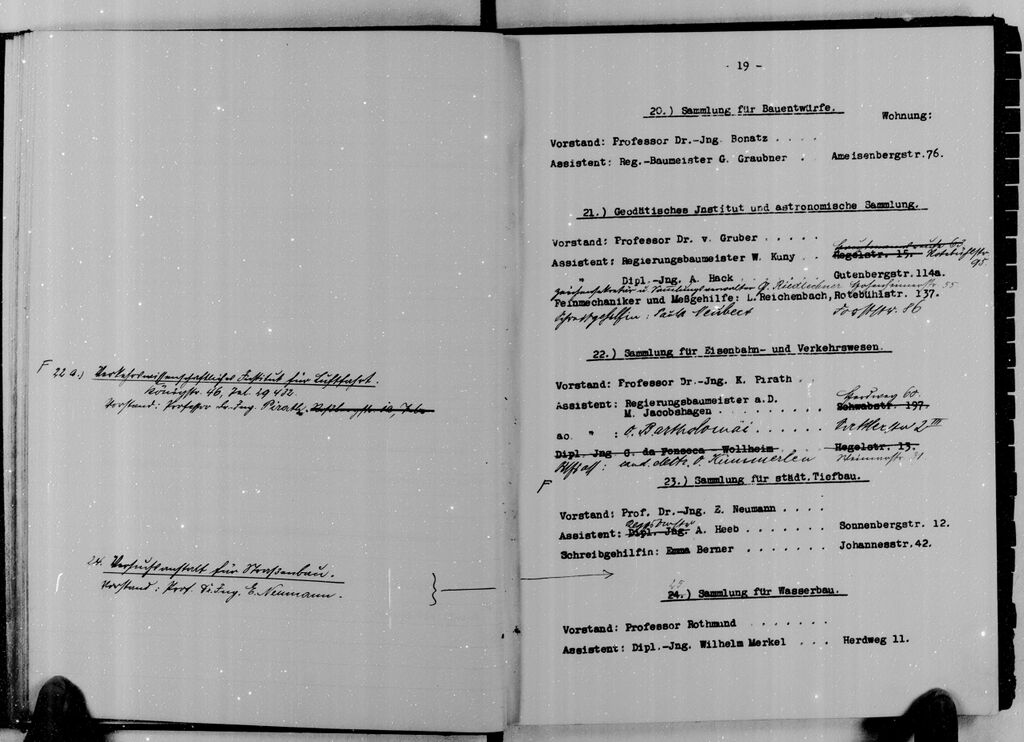 F 22 a.) Verkehrswissenschaftliches Institut für Luftfahrt.
Königstr. 46, Tel. 29432.
Vorstand: Professor Dr. Ing. Pirath,
24. Versuchsanstalt für Straßenbau.
Vorstand: Prof. Dr. Ing. E. Neumann.
- 19 -
20.) Sammlung für Bauentwürfe.
Wohnung:
Vorstand: Professor Dr.-Jng. Bonatz . . . .
Assistent: Reg.-Baumeister G. Graubner . Ameisenbergstr.76.
21.) Geodätisches Jnstitut und astronomische Sammlung.
Vorstand: Professor Dr. v. Gruber . . . . .
Assistent: Regierungsbaumeister W. Kuny . . Hegelstr. 15. Rotebühlstr. 95.
" Dipl.-Jng. A. Hack . . . . . Gutenbergstr.114a.
Zeichensekretär u. Sammlungsverwalter G. Riedlechner 55
Feinmechaniker und Meßgehilfe: L.Reichenbach, Rotebühlstr. 137.
Schreibgehilfin: Paula Neubert Forststr. 86
22.) Sammlung für Eisenbahn- und Verkehrswesen.
Vorstand: Professor Dr.-Jng. K. Pirath .
Assistent: Regierungsbaumeister a.D. Herdweg 60.
M. Jacobshagen . . . . . . Schwabstr. 197.
ao. " : O. Bartholomäi . . . . . .
Dipl. Jng C. da Fonseca - Wollheim . . Hegelstr. 13.
Hilfsass: cand. O. Kümmerlen
F
23.) Sammlung für städt. Tiefbau.
Vorstand: Prof. Dr.-Jng. E. Neumann . . . .
Assistent: Dipl. Jng. A. Heeb . . . . . . . Sonnenbergstr. 12.
Schreibgehilfin: Emma Berner . . . . . . . Johannesstr.42.
25
24.) Sammlung für Wasserbau.
Vorstand: Professor Rothmund . . . . . . .
Assistent: Dipl.-Jng. Wilhelm Merkel . . . Herdweg 11.